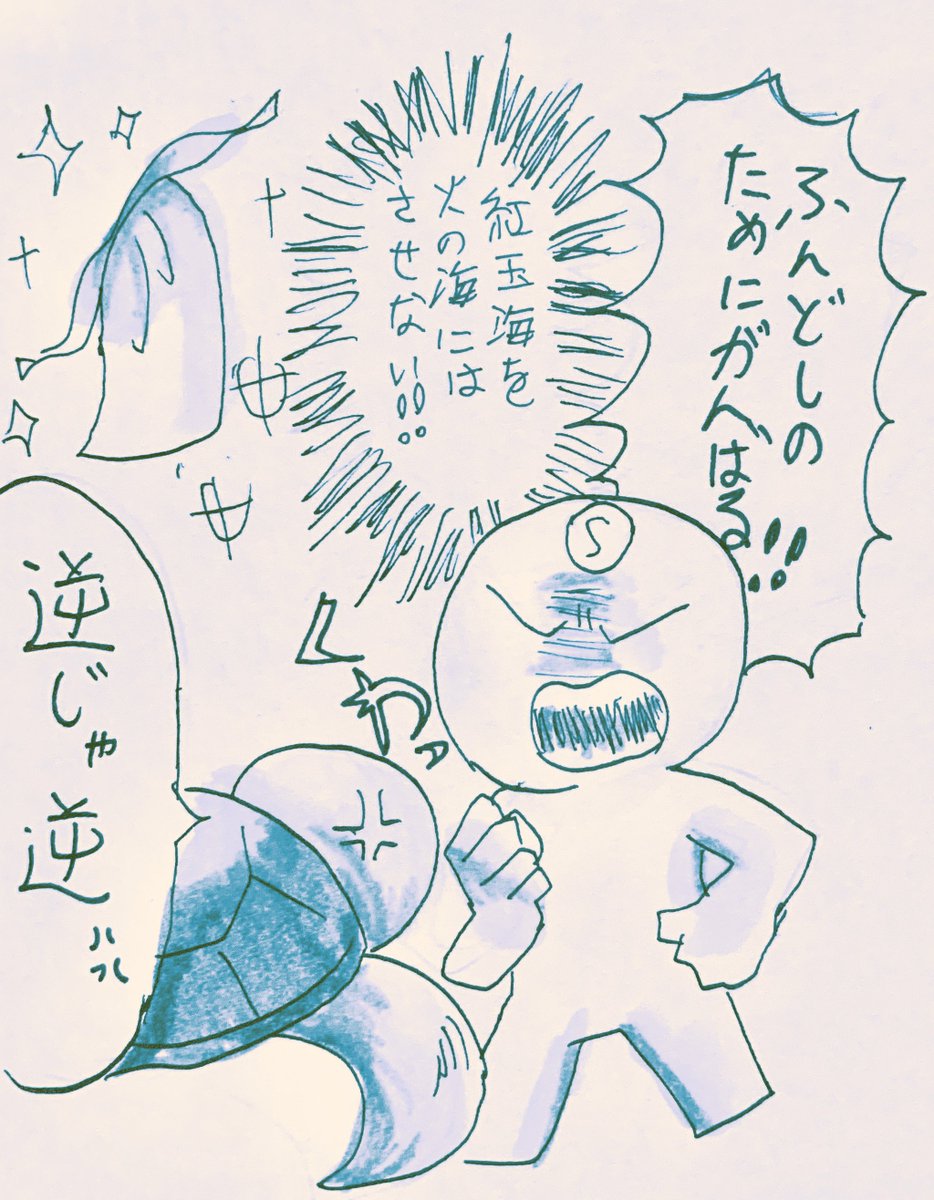 ふんどしの
ためにがんばる!!
紅玉海を
火の海には
させない!!
S
くわっ
逆じゃ逆!!